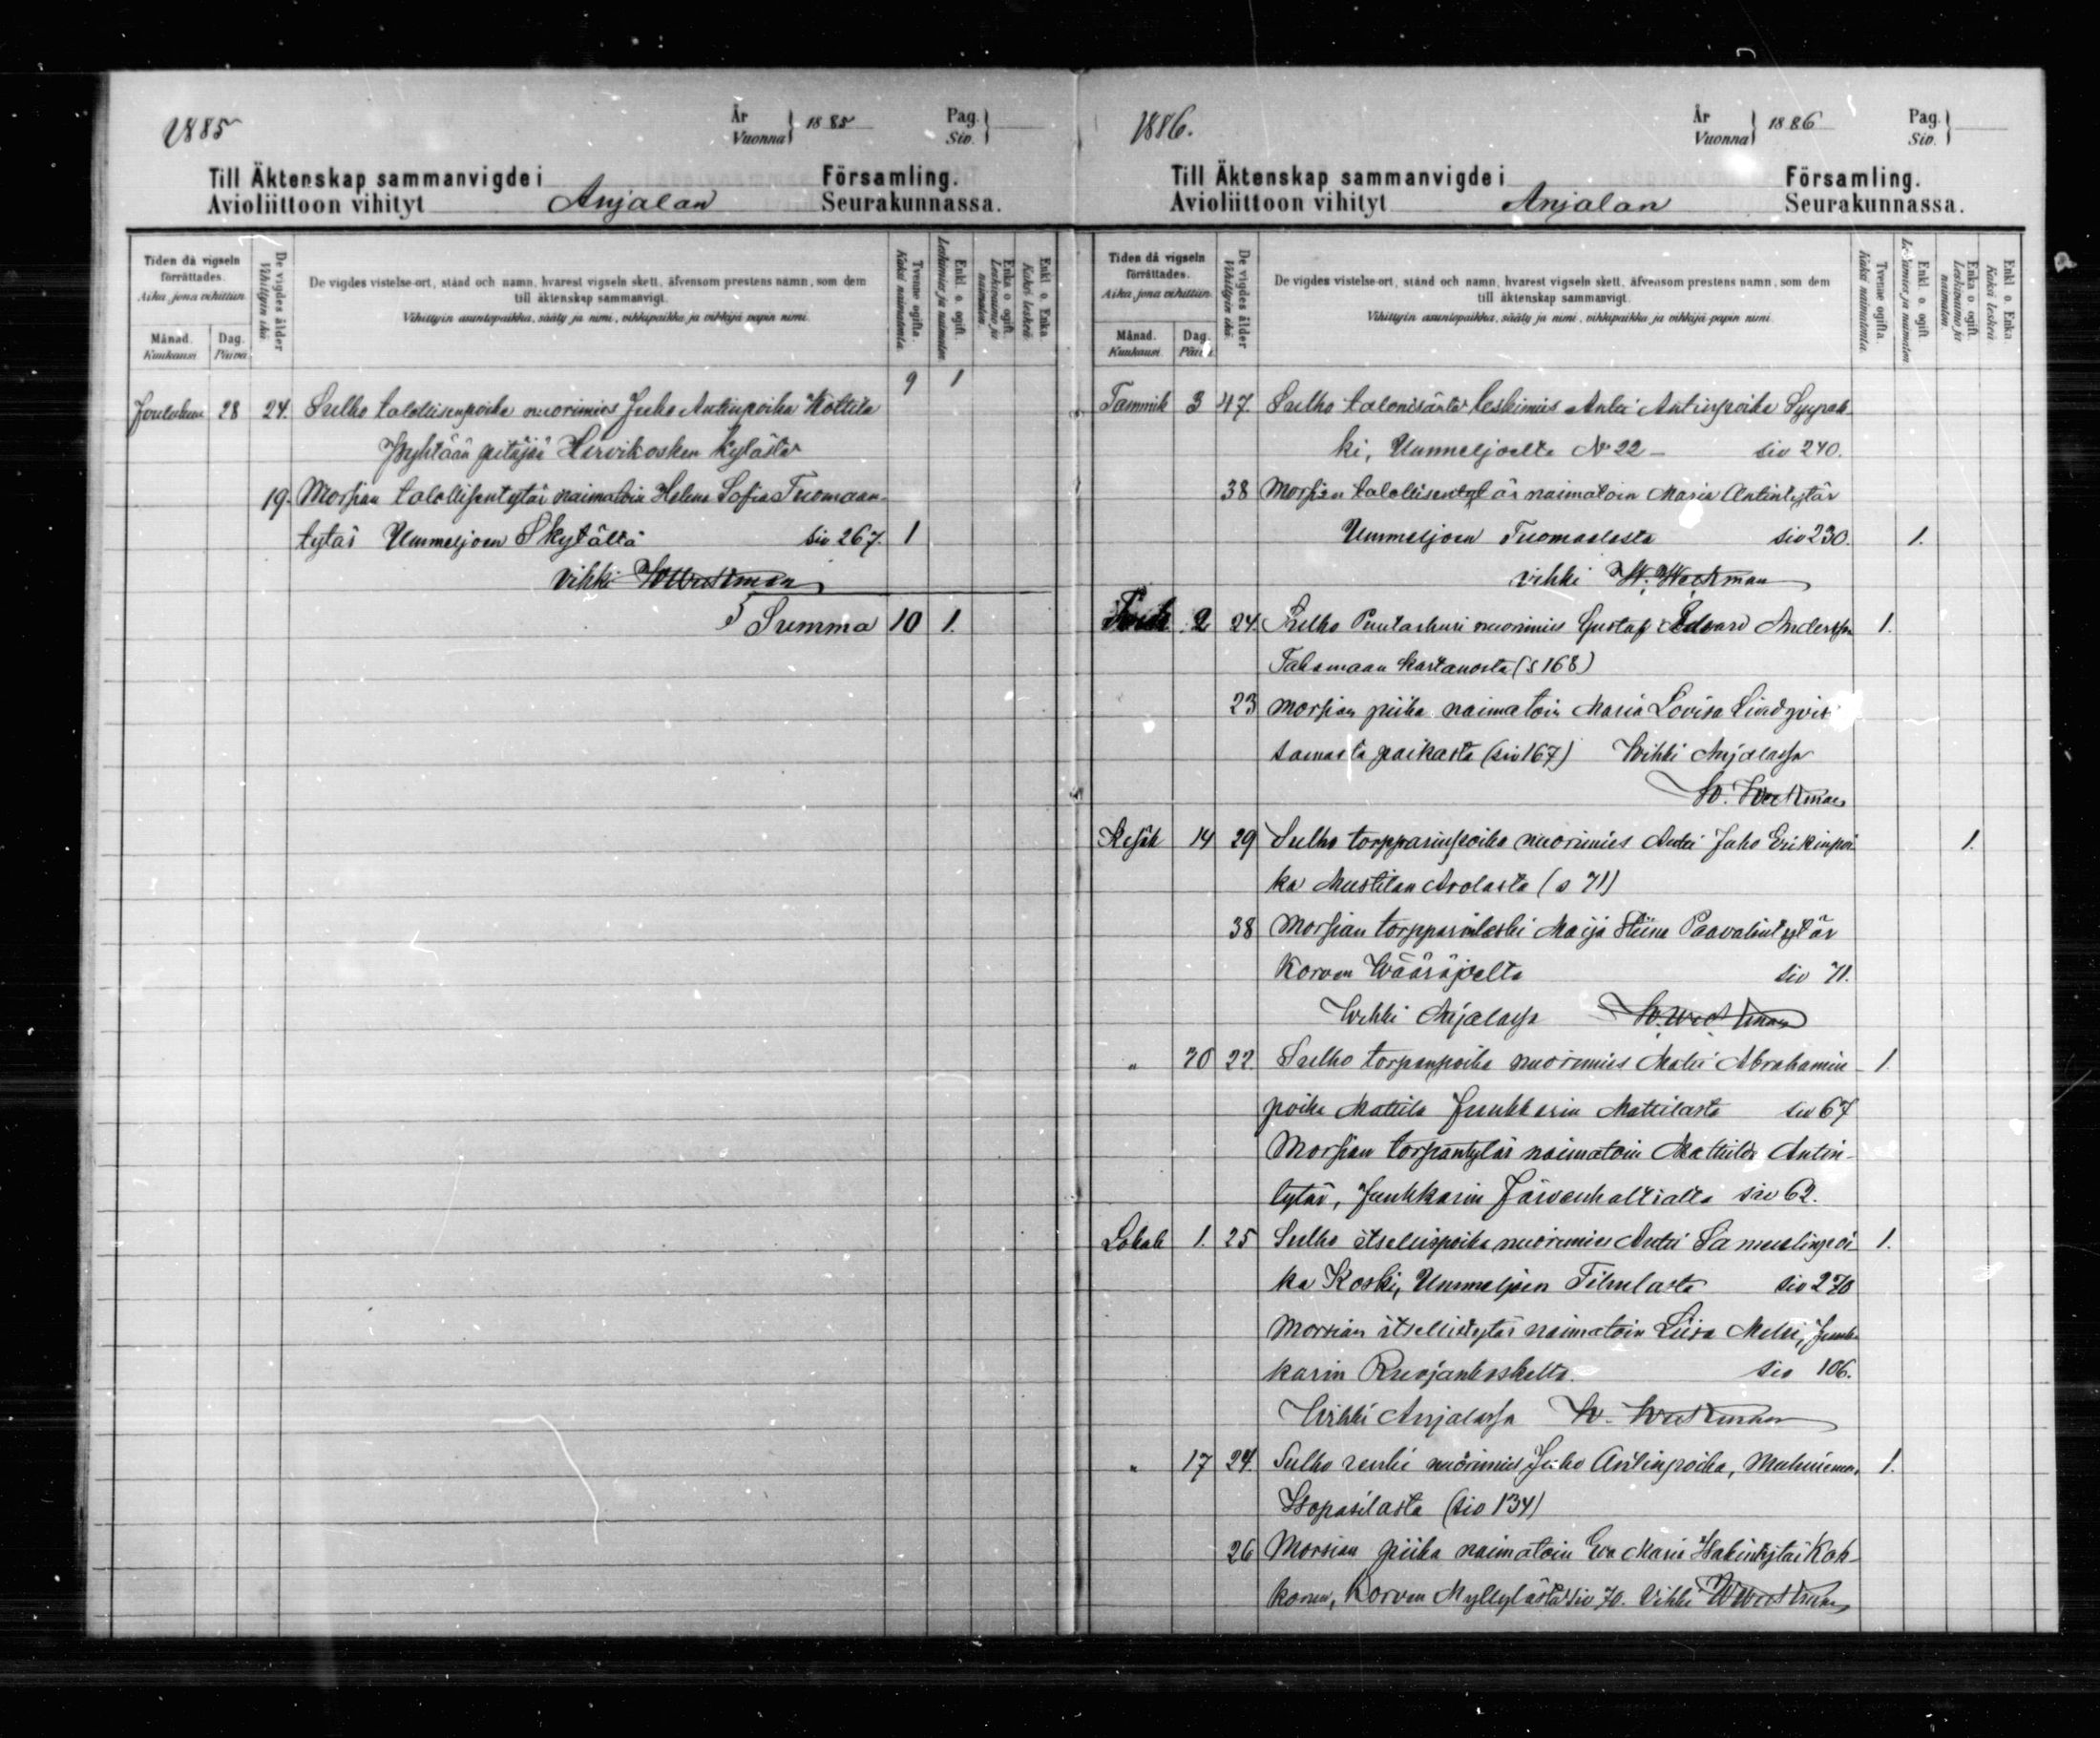 1885
År
Vuonna } 1885
Pag.
Siv. }
Till Äktenskap sammanvigde i Församling.
Avioliittoon vihityt Anjalan Seurakunnassa.
Tiden då vigseln förrättades.
Aika, jona vihittiin.
Månad.
Kuukausi.
Dag.
Päivä.
De vigdes ålder
Vihittyin ikä.
De vigdes vistelse-ort, stånd och namn, hvarest vigseln skett, äfvensom prestens namn, som dem
till äktenskap sammanvigt.
Vihittyin asuntopaikka, sääty ja nimi, vihkipaikka ja vihkijä-papin nimi.
Tvenne ogifta.
Kaksi naimatonta.
Enkl. o. ogift.
Leskimies ja naimaton.
Enka o. ogift.
Leskivaimo ja naimaton.
Enkl. o. Enka.
Kaksi leskeä.
9 1
Joulukuu 28 24. Sulho talollisenpoika nuorimies Juho Antinpoika Költtilä
Pyhtään pitäjää Hirvikosken kylästä
19. Morsian talollisentytär naimatoin Helena Sofia Tuomaan-
tytär Ummeljoen Skytältä siv 267. 1
Vihki W Westman
Summa 10 1.
1886.
År
Vuonna } 1886
Pag.
Siv. }
Till Äktenskap sammanvigde i Församling.
Avioliittoon vihityt Anjalan Seurakunnassa.
Tiden då vigseln förrättades.
Aika, jona vihittiin.
Månad.
Kuukausi.
Dag.
Päivä.
De vigdes ålder
Vihittyin ikä.
De vigdes vistelse-ort, stånd och namn, hvarest vigseln skett, äfvensom prestens namn, som dem
till äktenskap sammanvigt.
Vihittyin asuntopaikka, sääty ja nimi, vihkipaikka ja vihkijä-papin nimi.
Tvenne ogifta.
Kaksi naimatonta.
Enkl. o. ogift.
Leskimies ja naimaton.
Enka o. ogift.
Leskivaimo ja naimaton.
Enkl. o. Enka.
Kaksi leskeä.
Tammik 3 47. Sulho talonisäntä leskimies Antti Antinpoika Sypäk-
ki, Ummeljoelta No 22 – siv 240.
38 Morsian talollisentytär naimatoin Maria Antintytär
Ummeljoen Tuomaalasta siv 230. 1.
vihki W. Westman
2 24. Sulho Puutarhuri nuorimies Gustaf Edvard Andersson 1.
Takamaan kartanosta (s 168)
23 morsian piika naimatoin Maria Lovisa Lindqvist
samasta paikasta (siv 167) Wihki Anjalassa
W. Westman
Kesäk 14 29 Sulho torpparinpoika nuorimies Antti Juho Erikinpoi- 1.
ka Mustilan Arolasta (s 71)
38 Morsian torpparinleski Maija Stiina Paavalintytär
Korvan Wääräjoelta siv 71.
Wihki Anjalassa W. Westman
" 20 22. Sulho torpanpoika nuorimies Matti Abrahamin- 1.
poika Mattila Junkkarin Mattilasta siv 67
Morsian torpantytär naimatoin Mathilda Antin-
tytär, Junkkarin Järvenhaltialta siv 62.
Lokak 1. 25 Sulho itsellispoika nuorimies Antti Samuelinpoi- 1.
ka Koski, Ummeljoen siv 270
Morsian itsellistytär naimatoin Liisa Junk-
karin Ruojankoskelta. siv 106.
Wihki Anjalassa W. Westman
" 17 24. Sulho renki nuorimies Juho Antinpoika, Muhniemen 1.
Isopasilasta (siv 134)
26 Morsian piika naimatoin Eva Maria Kok-
konen, Korvan Myllylästä siv 70. Vihki W Westman